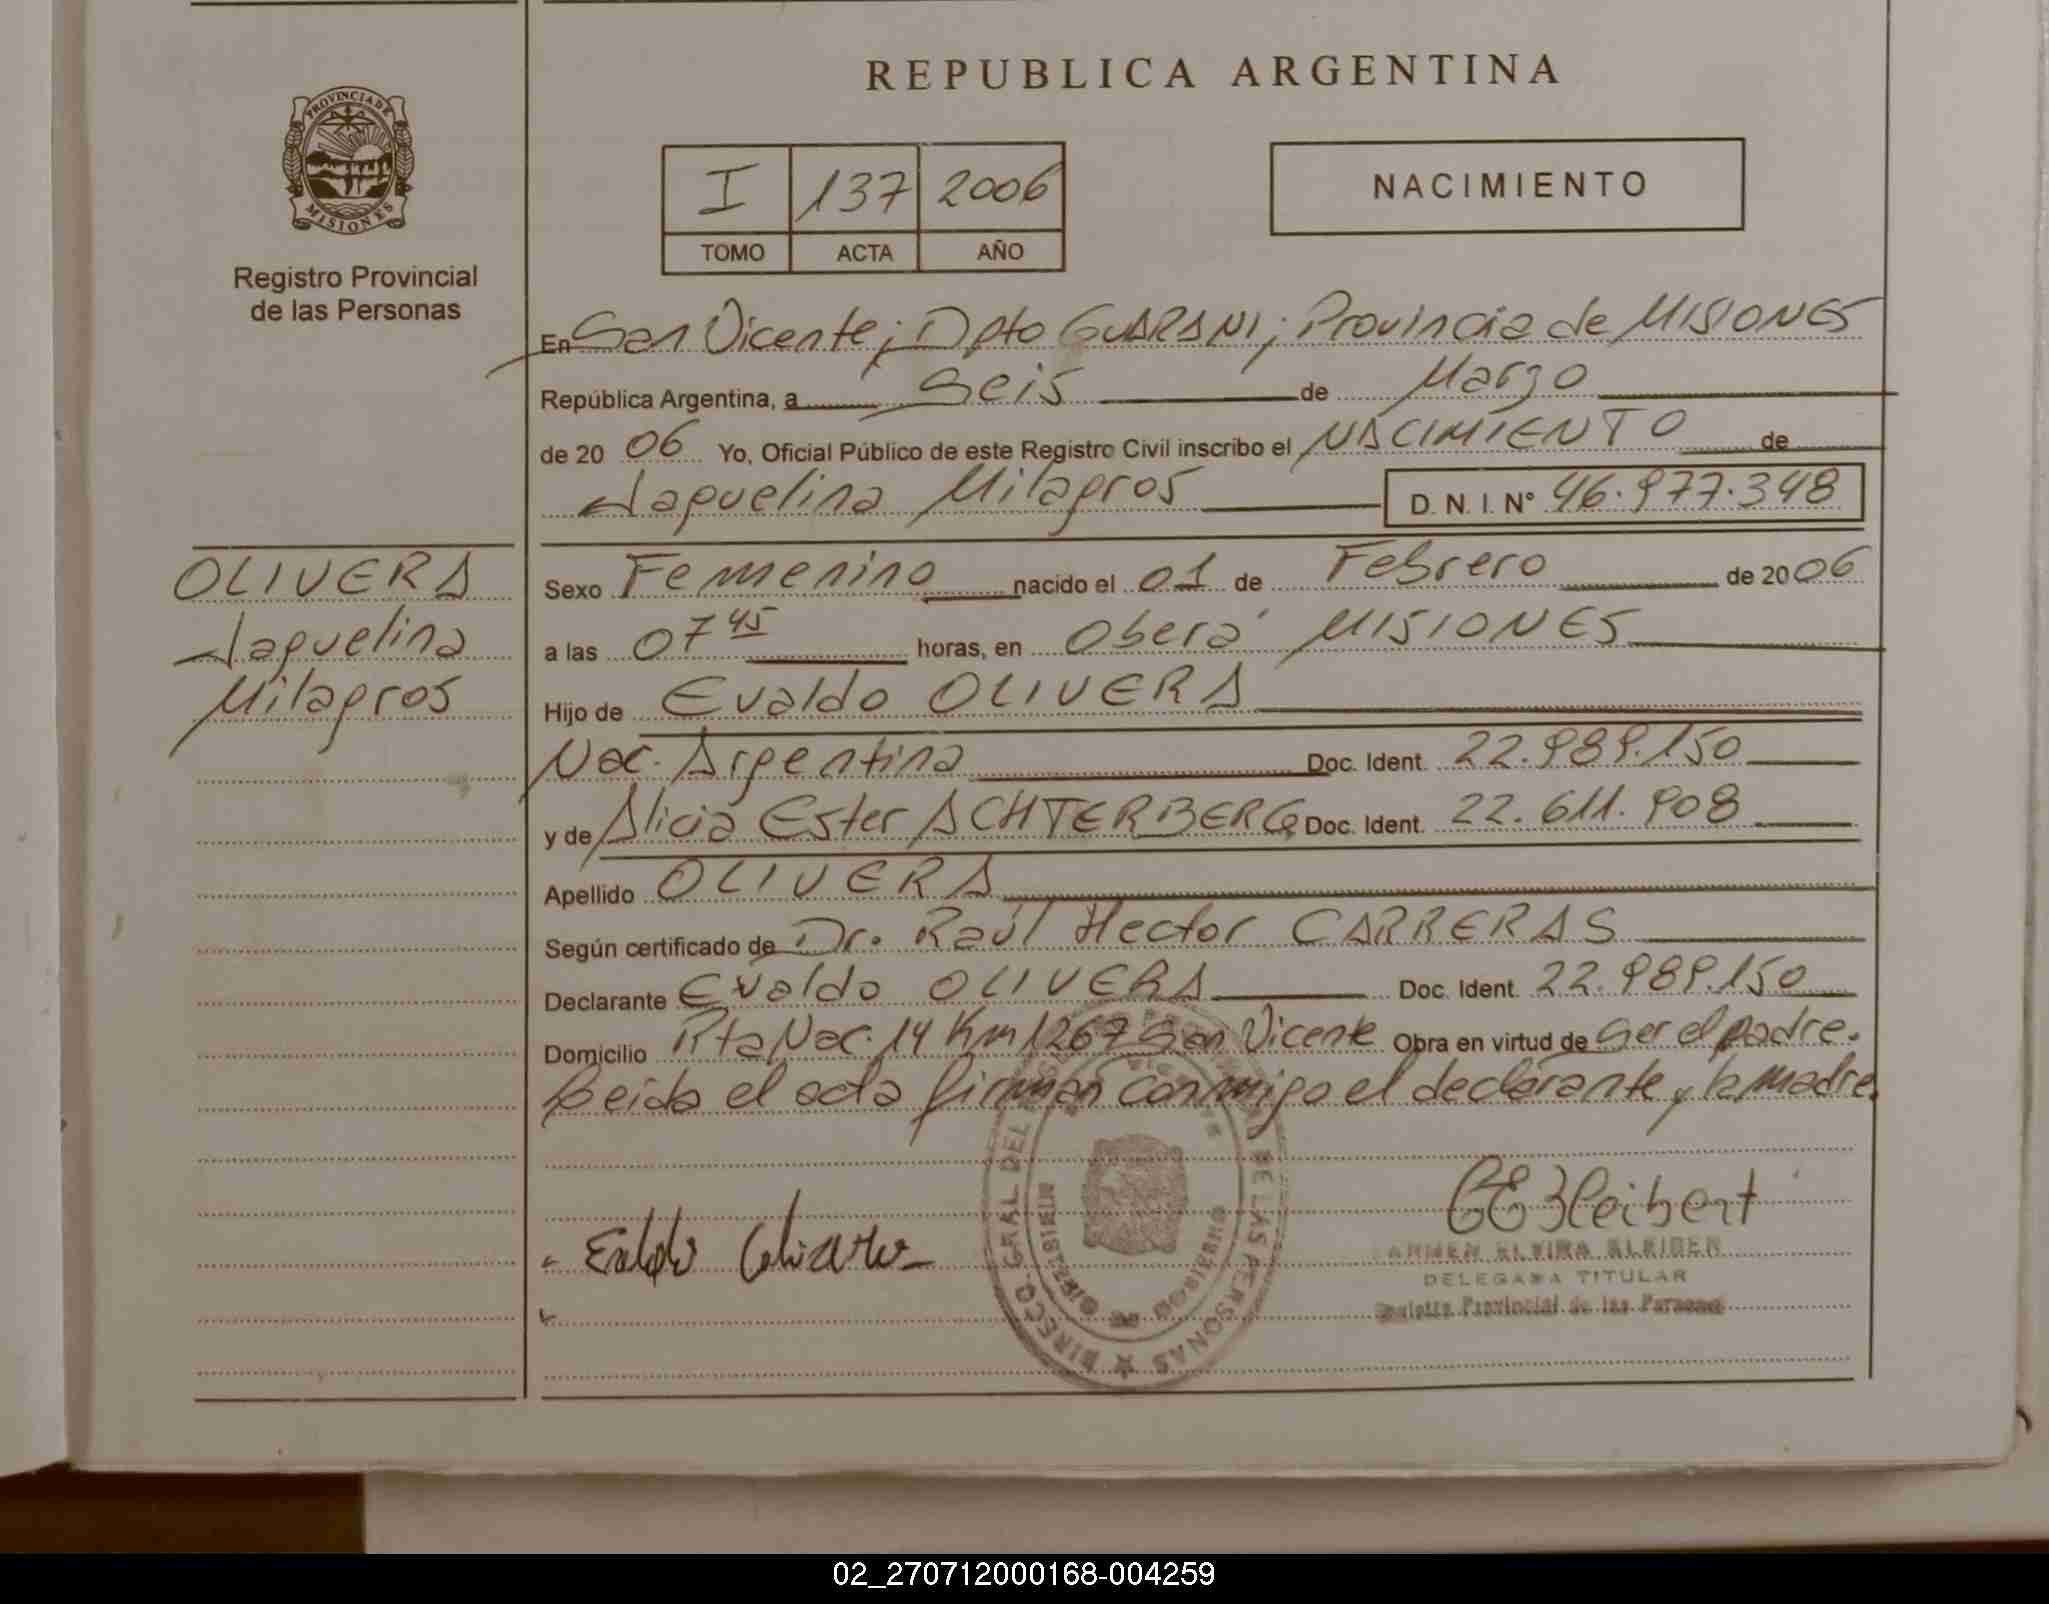 REPUBLICA ARGENTINA
PROVINCIA DE MISIONES
Registro Provincial
de las Personas
I 137 2006
TOMO ACTA AÑO
NACIMIENTO
En San Vicente; Dpto GUARANI; Provincia de MISIONES
República Argentina, a Seis de Marzo
de 20 06 Yo, Oficial Público de este Registro Civil inscribo el NACIMIENTO de
Jaquelina Milagros D.N.I.Nº 46.977.348
OLIVERA
Jaquelina
Milagros
Sexo Femenino nacido el 01 de Febrero de 20 06
a las 07 45 horas, en Oberá MISIONES
Hijo de Evaldo OLIVERA
Nac. Argentina Doc. Ident. 22.989.150
y de Alicia Ester ACHTERBERG Doc. Ident. 22.611.908
Apellido OLIVERA
Según certificado de Dr. Raúl Hector CARRERAS
Declarante Evaldo OLIVERA Doc. Ident. 22.989.150
Domicilio Rta Nac. 14 Km 1267 San Vicente Obra en virtud de ser el padre.
Leida el acta firman conmigo el declarante y la madre.
DIRECC. GRAL DEL DE LAS PERSONAS
CARMEN ELVIRA
DELEGADA TITULAR
Provincial de las Personas
02_270712000168-004259